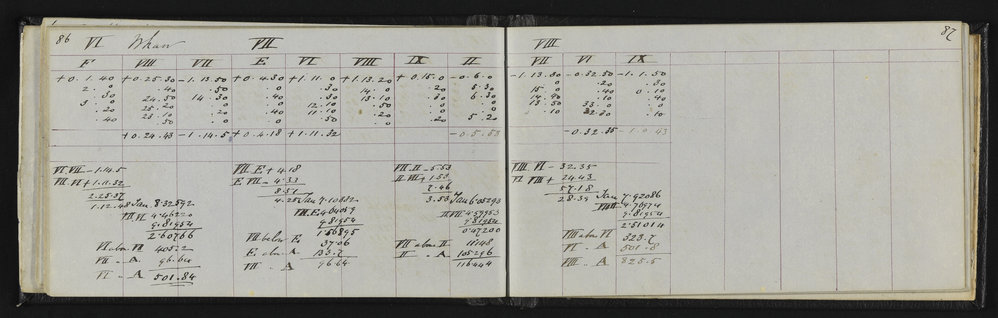 86 VI VII
F VIII VII E VI VIII IX II
+0.1.40 +0.25.30 -1.13.50 +0.4.30 +1.11.0 +1.13.20 +0.15.0 -0.6.0
2.0 .40 .50 .0 .0 14.0 .20 5.30
.30 24.50 14.30 .30 .40 13.10 .30 6.30
3.0 25.20 .0 .0 12.10 .50 .0 .0
.20 25.10 .20 .40 11.10 .0 .0 .0
.40 .50 .0 .0 .50 .0 .20 5.20
+0.24.43 -1.14.5 +0.4.18 +1.11.32 -0.5.53
VI.VII -1.14.5
VII.VI +1.11.32
2.25.37
1.12.48 Tan. 8.32592
VII.VI 4.46220
9.81954
2.60766
VI abv. VII 405.22
VII .. A 96.64
VI .. A 501.84
VII.E +4.18
E.VII -4.33
8.51
4.25 Tan 7.10882
VII.E 4.64059
9.81954
1.56895
VII below E 37.06
E abv. A 133.7
VII .. A 96.64
VII.II -5.53
II.VII +1.53
7.46
3.53 Tan 6.05293
II.VII 4.59953
9.81954
0.47200
VII above II 11.148
II .. A 105.296
116.444
87
VIII
VII VI IX
-1.13.30 -0.32.50 -1.1.50
.0 .20 .30
15.0 .40 0.10
14.40 .10 .40
13.50 33.0 .0
.10 32.30 .10
-0.32.35 -1.0.43
VIII.VI -32.35
VI VIII + 24.43
57.18
28.39 Tan 7.92086
VI.VIII 4.76974
9.81954
2.51014
VIII abv VI 323.7
VI .. A 501.8
VIII .. A 825.5